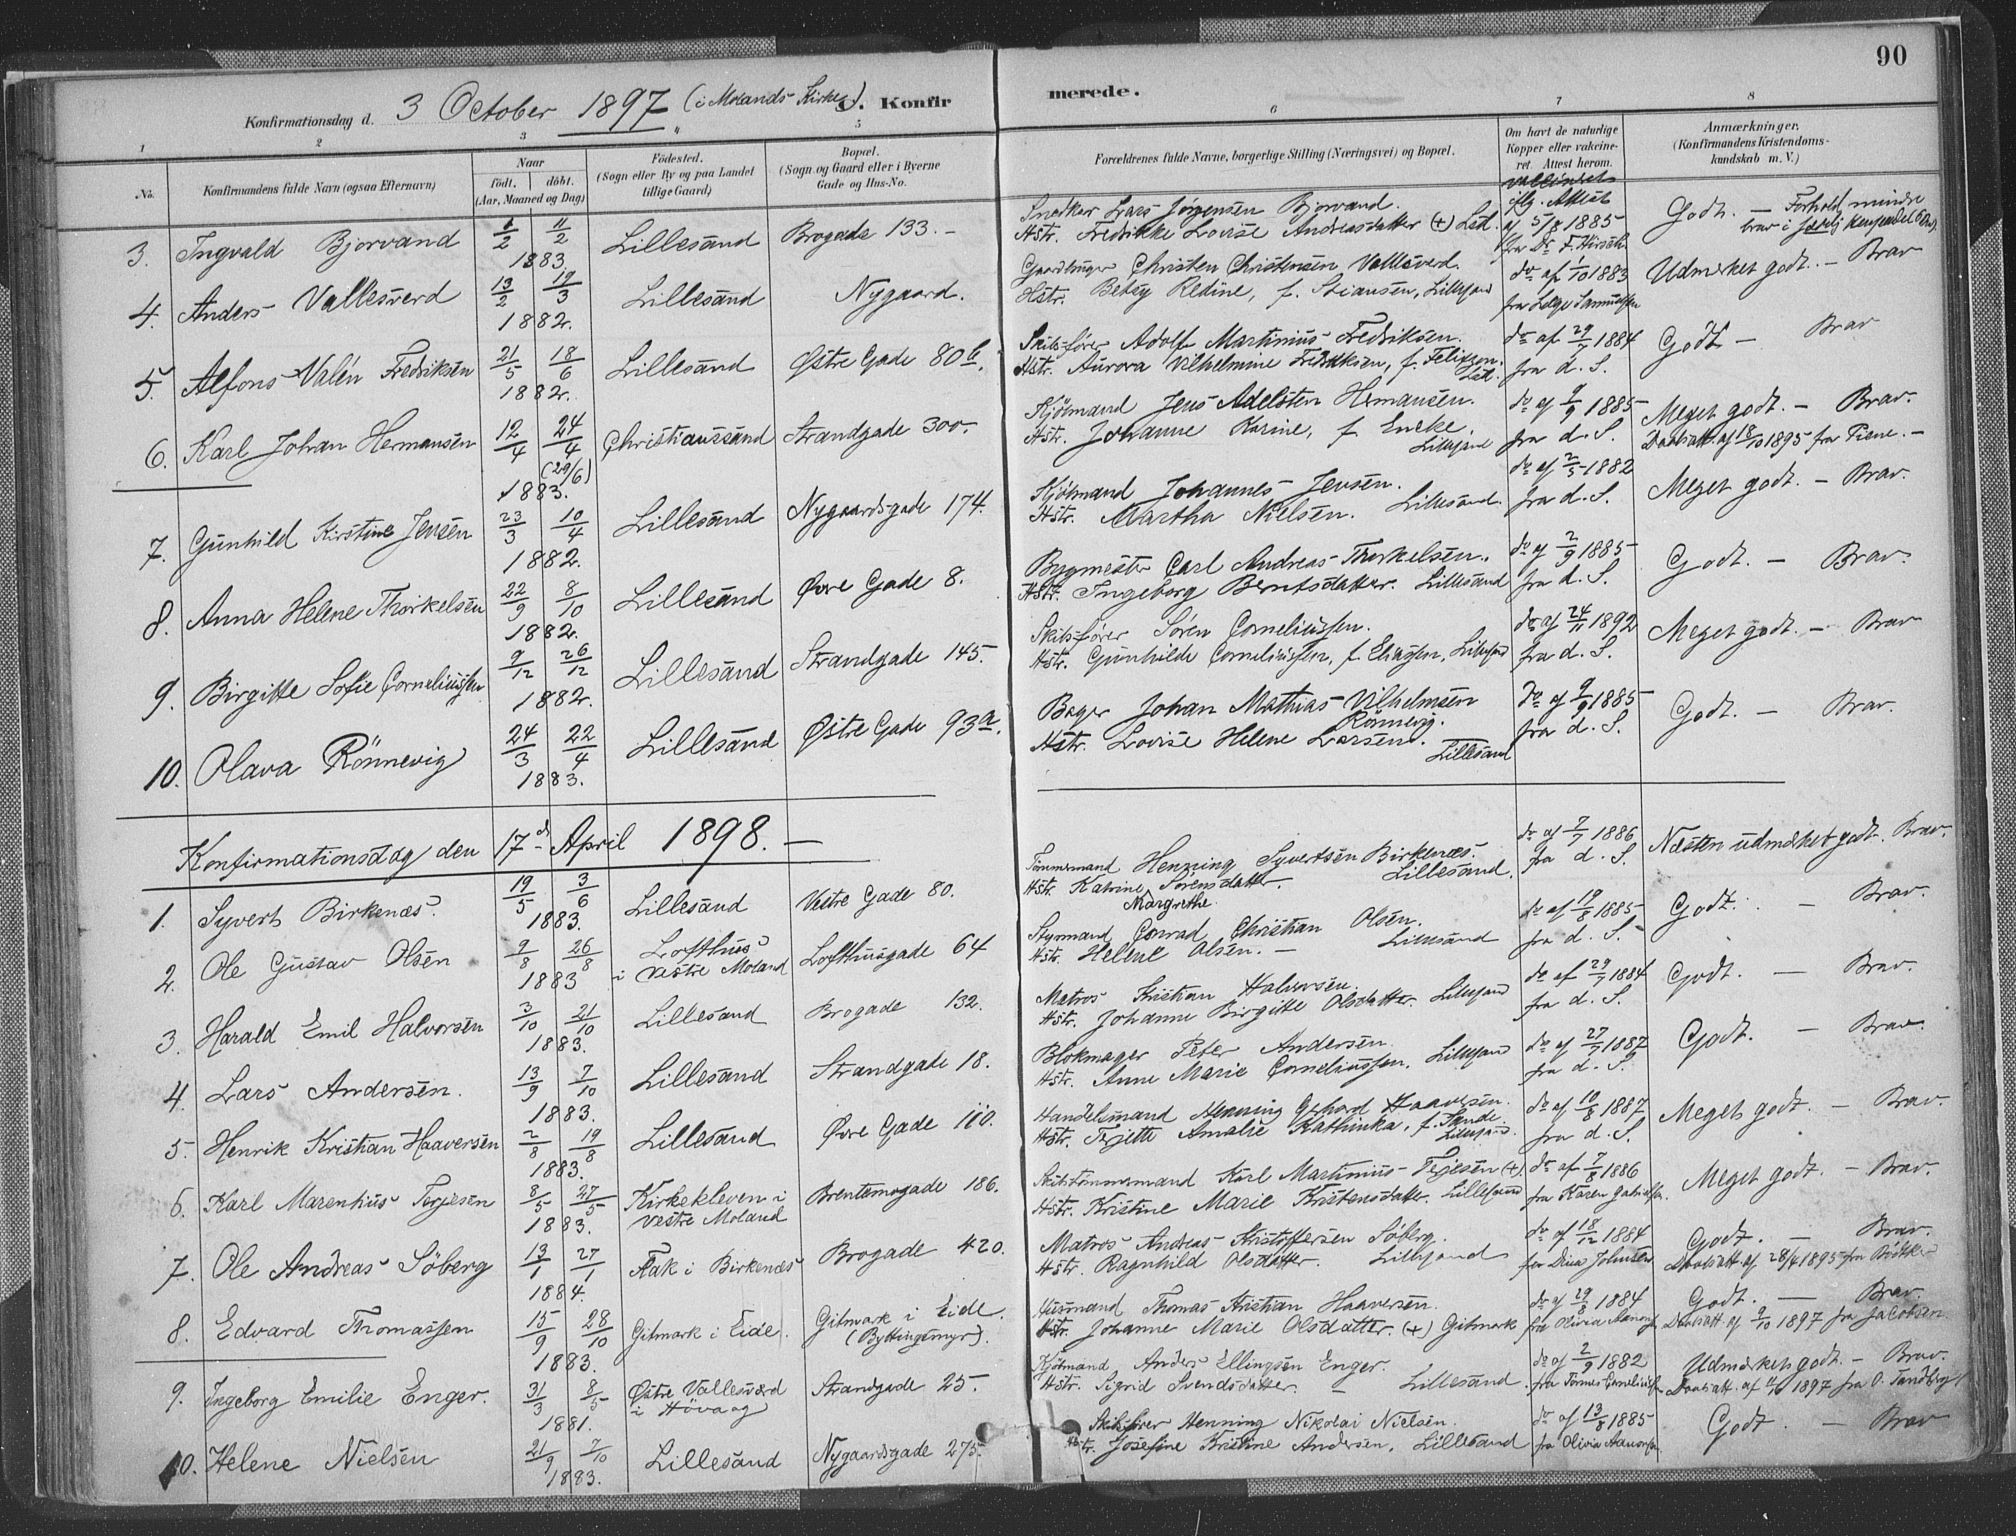 90
Konfirmationsdag d. 3 October 1897 (i Molands Kirke) C. Konfir merede.
1 2 3 5 6 7 8
No. Konfirmandens fulde Navn (ogsaa Efternavn) Naar födt. döbt. (Aar, Maaned og Dag) Födested. (Sogn eller By og paa Landet tillige Gaard) Bopæl. (Sogn og Gaard eller i Byerne Gade og Hus-No. Forældrenes fulde Navne, borgerlige Stilling (Næringsvei) og Bopæl. Om havt de naturlige Kopper eller vakcineret. Attest herom. Anmærkninger. (Konfirmandens Kristendomskundskab m. V.)
3. Ingvald Bjorvand 6/2 11/2 1883. Lillesand Brogade 133.- Snedker Lars Jörgensen Bjorvand. Hstr. Fredrikke Lovise Andreasdatter (+) Lsd. iflg. Attest af 5/8 1885 fra Dr. F. Hirsch Godt. - Forhold mindre brav i
4. Anders Vallesverd 13/2 19/3 1882. Lillesand Nygaard. Gaardbruger Christen Christensen Vallesverd. Hstr. Betsy Redine, f. Stiansen, Lillesand do af 1/10 1883 fra Læge Samuelsen Udmerket godt. - Brav
5. Alfons Valén Fredriksen 21/5 18/6 1882. Lillesand Østre Gade 80b. Skibsfører Adolf Martinius Fredriksen. Hstr. Aurora Vilhelmine Fredriksen, f. Felixsen. Lsd. do af 29/7 1884 fra d. S. Godt - Brav
6. Karl Johan Hermansen 12/4 24/4 (29/6) 1883. Christianssand Strandgade 300. Kjöbmand Jens Adelsten Hermansen. Hstr. Johanne Karine, f. Encke. Lillesand do af 9/9 1885 fra d. S. Meget godt. - Brav. Daabsatt. af 18/10 1895 fra Tiene. -
7. Gunhild Kirstine Jensen 23/3 10/4 1882. Lillesand Nygaardsgade 174. Kjöbmand Johannes Jensen. Hstr. Martha Nielsen. Lillesand. do af 2/5 1882 fra d. S. Meget godt. - Brav.
8. Anna Helene Thorkelsen 22/9 8/10 1882. Lillesand Øvre Gade 8. Bygmester Carl Andreas Thorkelsen. Hstr. Ingeborg Berntsdatter. Lillesand do af 2/9 1885 fra d. S. Godt. - Brav.
9. Birgitte Sofie Corneliussen 9/12 26/12 1882. Lillesand Strandgade 145. Skibsfører Sören Corneliussen. Hstr. Gunhilde Corneliussen, f. Eliassen, Lillesand do af 24/11 1892 fra d. S. Meget godt. - Brav
10. Olava Rönnevig 24/3 22/4 1883. Lillesand Østre Gade 93a. Bager Johan Mathias Vilhelmsen Rönnevig. Hstr. Lovise Helene Larsen. Lillesand do af 9/9 1885 fra d. S. Godt. - Brav.
Konfirmationsdag den 17d April 1898. -
1. Syvert Birkenæs. 19/5 3/6 1883. Lillesand Vestre Gade 80. Tømmermand Henning Syvertsen Birkenæs. Hstr. Katrine Margrethe Sörensdatter. Lillesand. do af 7/7 1886 fra d. S. Næsten udmærket godt. Brav.
2. Ole Gustav Olsen 9/8 26/8 1883 Lofthus i Vestre Moland Lofthusgade 64 Styrmand Conrad Christian Olsen. Hstr. Helene Olsen. - Lillesand do af 19/8 1885 fra d. S. Godt. - Brav.
3. Harald Emil Halvorsen 3/10 21/10 1883. Lillesand Brogade 132. Matros Kristian Halvorsen. Hstr. Johanne Birgitte Olsdatter. Lillesand do af 29/7 1884 fra d. S. Godt. - Brav.
4. Lars Andersen. 13/9 7/10 1883. Lillesand Strandgade 18. Blokmager Peter Andersen. Hstr. Anne Marie Corneliussen. Lillesand do af 27/7 1887 fra d. S. Godt. - Brav.
5. Henrik Kristian Haaversen 2/8 19/8 1883. Lillesand Øvre Gade 110. Handelsmand Henning Gehard Haaversen. Hstr. Terjette Amalie Kathinka, f. Sande. Lillesand. do af 10/8 1887 fra d. S. Meget godt. - Brav.
6. Karl Marenhius Terjesen 8/5 27/5 1883. Kirkekleven i Vestre Moland Brentemogade 186. Skibstömmermand Karl Martinius Terjesen (+) Hstr. Kristine Marie Kristensdatter. Lillesand do af 7/8 1886 fra Karen Gabrielsen. Meget godt. - Brav.
7. Ole Andreas Söberg 13/1 27/1 1884. Flak i Birkenæs Brogade 420. Matros Andreas Kristoffersen Söberg. Hstr. Ragnhild Olsdatter. Lillesand do af 18/12 1884 fra Dina Johnsen Godt. - Brav. Daabsatt. af 28/4 1895 fra Bödtker
8. Edvard Thomassen 15/9 28/10 1883. Gitmark i Eide. Gitmark i Eide. (Byttingsmyr). Husmand Thomas Kristian Haaversen. Hstr. Johanne Marie Olsdatter. (+) Gitmark do af 29/8 1884 fra Olivia Aanonsen Godt. - Brav. Daabsatt. af 9/10 1897 fra Jacobsen
9. Ingeborg Emilie Enger. 31/3 8/5 1881. Østre Vallesværd i Hövaag Strandgade 25. Kjöbmand Anders Ellingsen Enger. Hstr. Sigrid Svendsdatter. - Lillesand do af 2/9 1882 fra Tomas Corneliussen Udmerket godt. - Brav. Daabsatt. af 1897 fra O. Sandberg
10. Helene Nielsen 21/9 7/10 1883. Lillesand Nygaardsgade 275. Skibsfører Henning Nikolai Nielsen. Hstr. Josefine Kristine Andersen, Lillesand do af 13/8 1885 fra Olivia Aanonsen. Godt - Brav